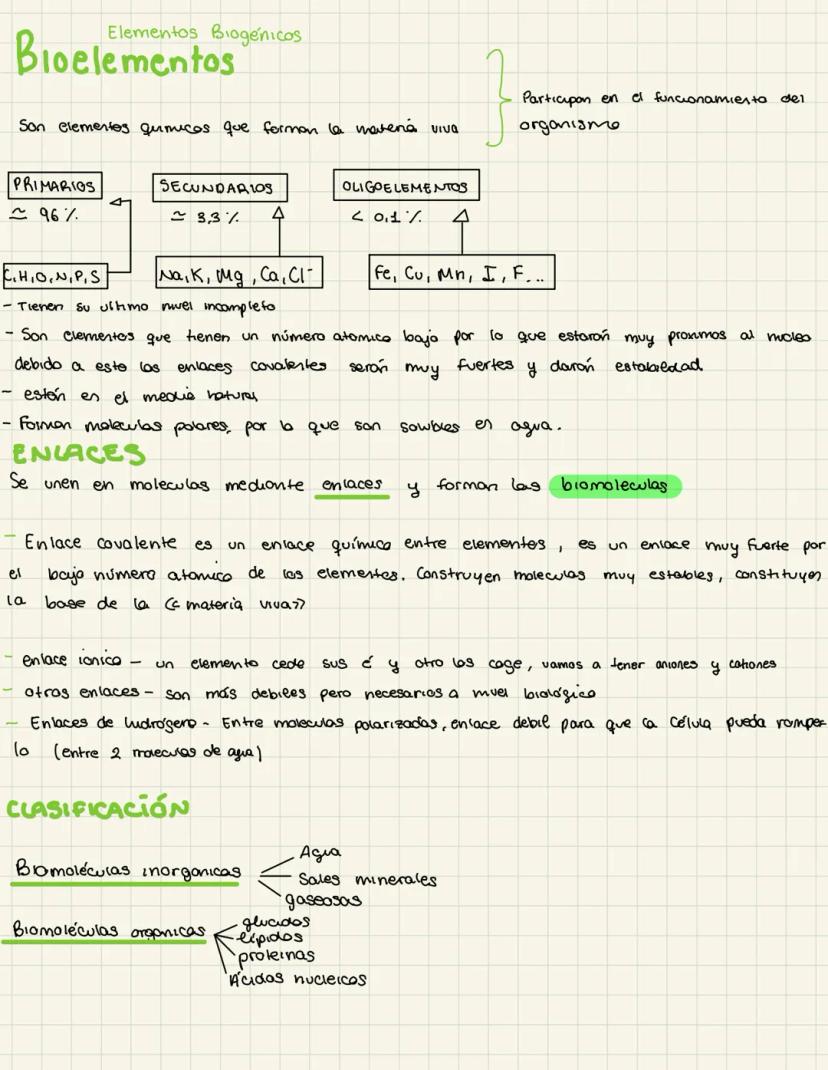 Elementos Biogénicos
Bioelementos
Son elementos quimicos que forman la materia viva
Participan en el funcionamiento del
organismo
PRIMARIOS
≃ 96 %
C,H,O,N,P,S
SECUNDARIOS
≃ 3,3 %
Na,K, Mg, Ca,Cl⁻
OLIGOELEMENTOS
< 0,1 %
Fe, Cu, Mn, I, F...
- Tienen su ultimo nivel incompleto
- Son elementos que tienen un número atomico bajo por lo que estarán muy proximos al nucleo
debido a esto los enlaces covalentes serán muy fuertes y darán estabilidad.
- están en el medio natural
- Forman moleculas polares, por lo que son solubles en agua.
ENLACES
Se unen en moleculas mediante enlaces y forman las biomoleculas
- Enlace covalente es un enlace químico entre elementos, es un enlace muy fuerte por
el bajo número atomico de los elementos. Construyen moleculas muy estables, constituyen
la base de la << materia viva>>
- enlace ionico - un elemento cede sus é y otro los coge, vamos a tener aniones y cationes
- otros enlaces - son más debiles pero necesarios a nivel biológico
- Enlaces de hidrógeno - Entre moleculas polarizadas, enlace debil para que la célula pueda romper-
lo (entre 2 moleculas de agua)
CLASIFICACIÓN
Biomoléculas inorganicas
Agua
Sales minerales
gaseosas
Biomoléculas organicas
glucidos
lípidos
proteinas
Ácidos nucleicos